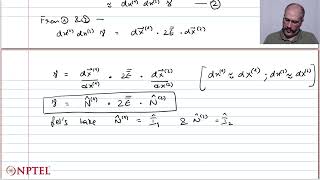 ≈ dx⁽¹⁾ dx⁽²⁾ γ — ②
From ① & ② —
dx⁽¹⁾ dx⁽²⁾ γ = dx⃗⁽¹⁾ · 2ε̿ · dx⃗⁽²⁾
γ = dx⃗⁽¹⁾/dx⁽¹⁾ · 2ε̿ · dx⃗⁽²⁾/dx⁽²⁾ [dx⁽¹⁾ ≈ dX⁽¹⁾ ; dx⁽²⁾ ≈ dX⁽²⁾]
γ = N̂⁽¹⁾ · 2ε̿ · N̂⁽²⁾
let's take N̂⁽¹⁾ = Î₁ & N̂⁽²⁾ = Î₂
NPTEL